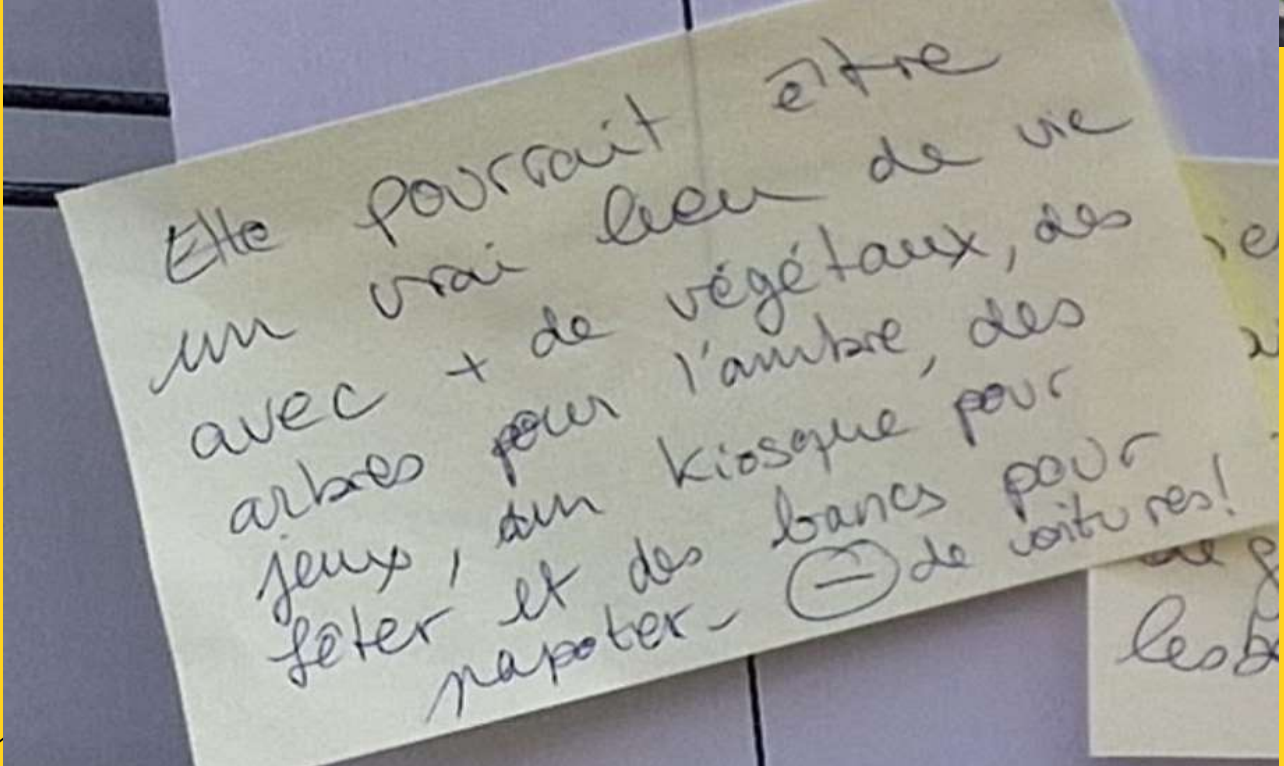 Elle pourrait être
un vrai lieu de vie
avec + de végétaux, des
arbres pour l'ambre, des
jeux, un kiosque pour
fêter et des bancs pour
papoter - ⊖ de voitures!
les